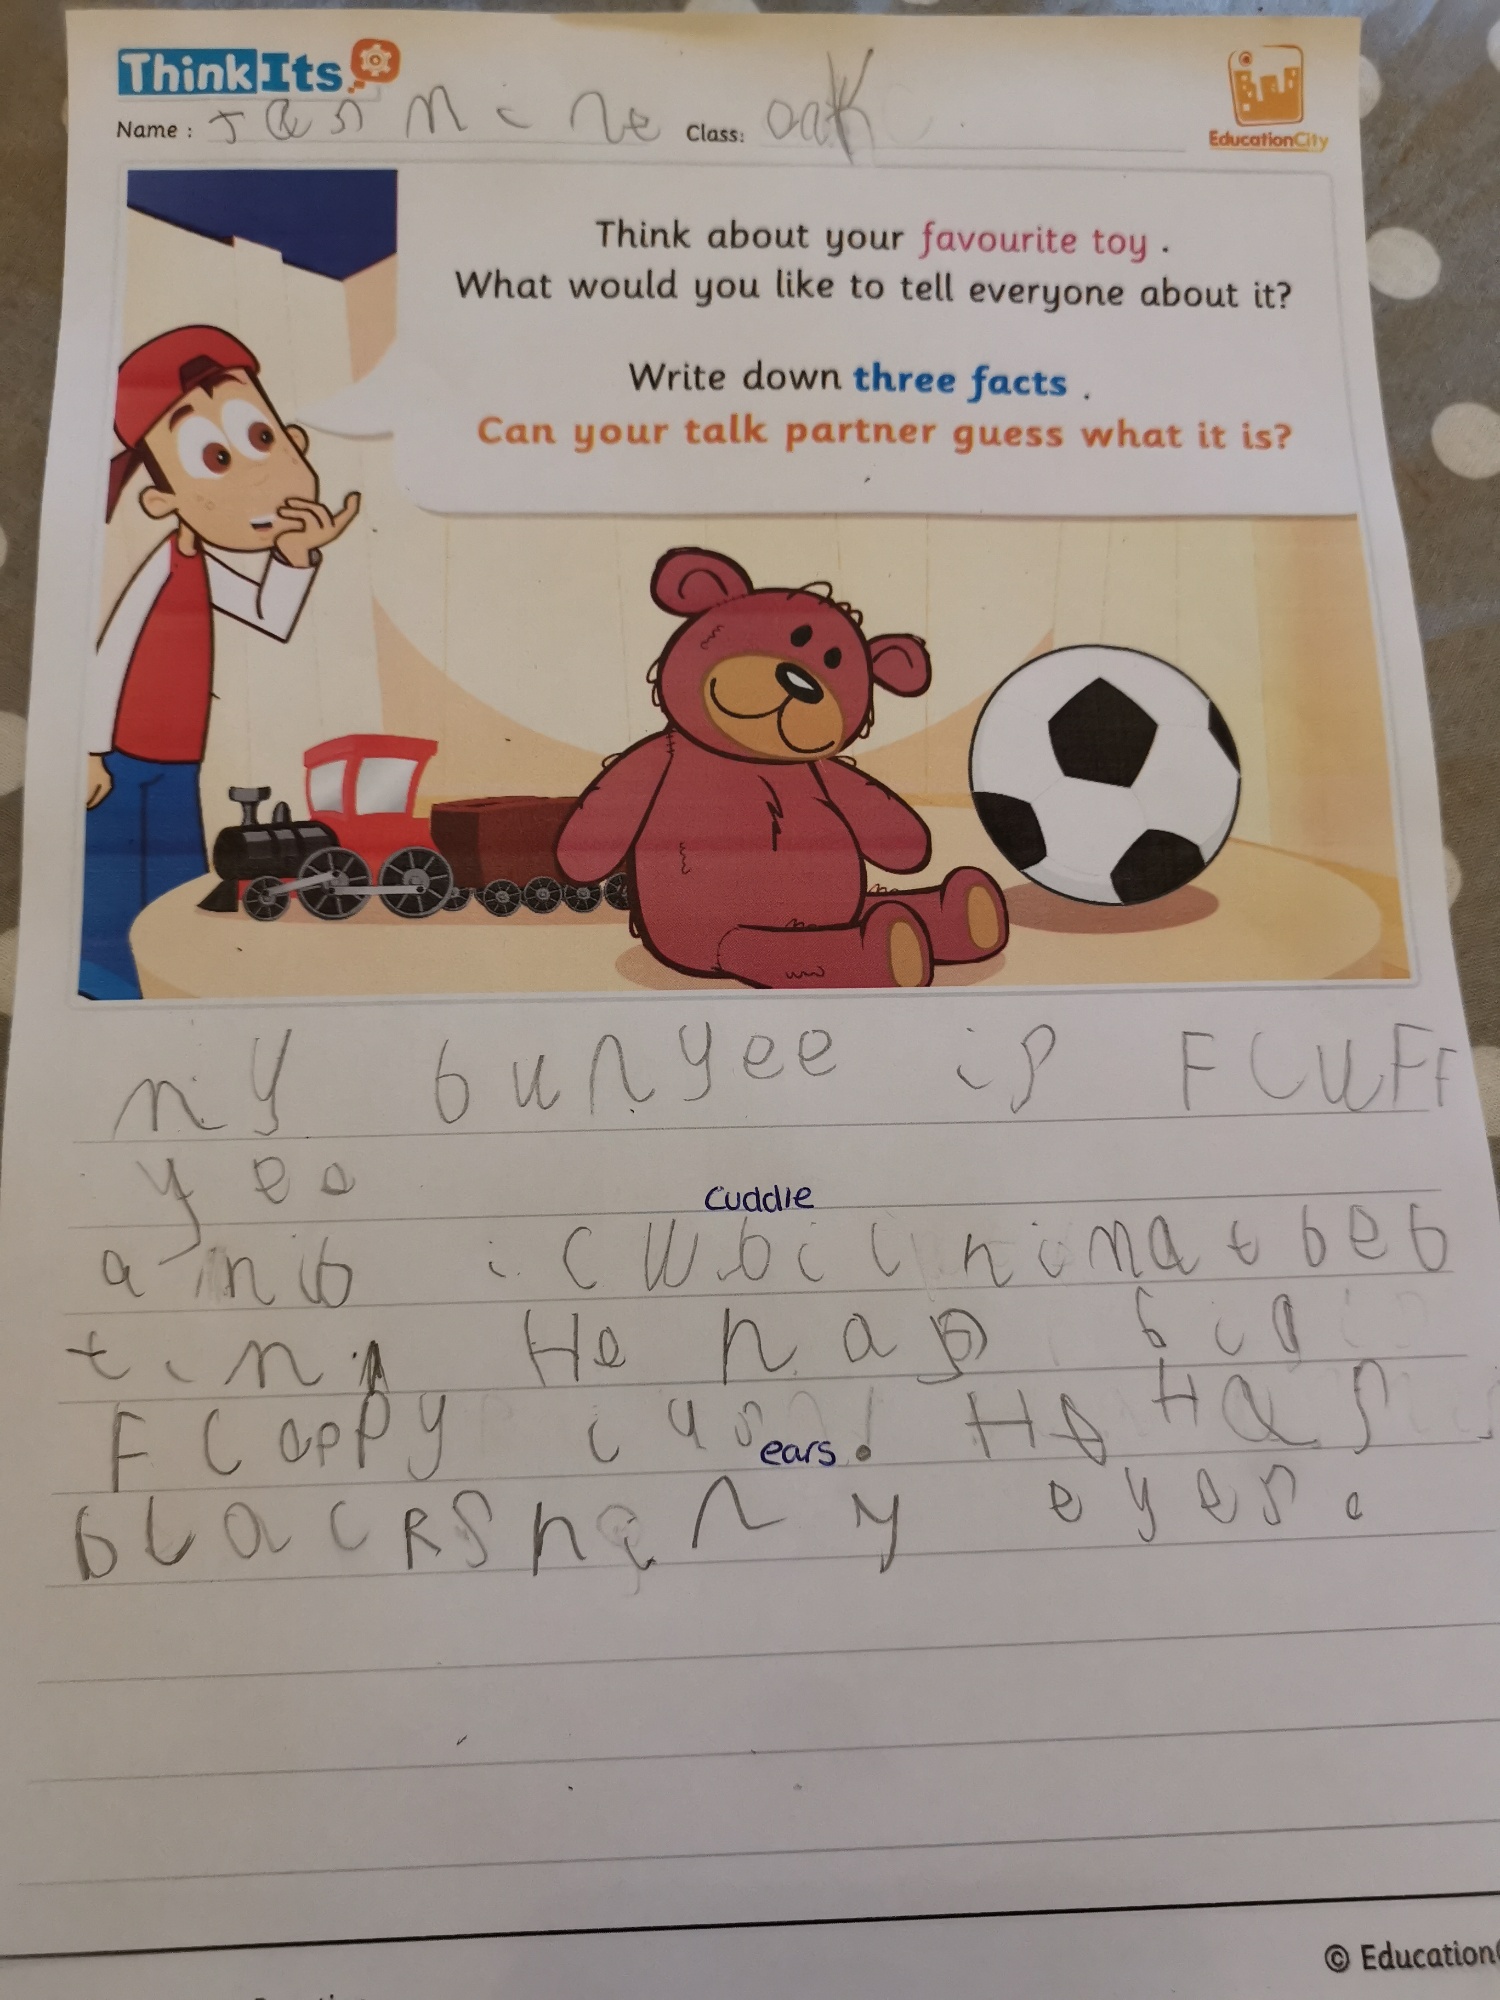 ThinkIts
Name : Jasmine Class: oak
EducationCity
Think about your favourite toy .
What would you like to tell everyone about it?
Write down three facts .
Can your talk partner guess what it is?
my bunyee is FluFF
yee
cuddle
anb i cubil himat beb
tim He has big
Flappy ius! He Has
ears.
blackshiny eyes.
© Education